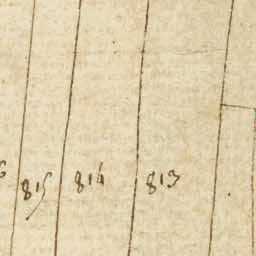 815 814 813